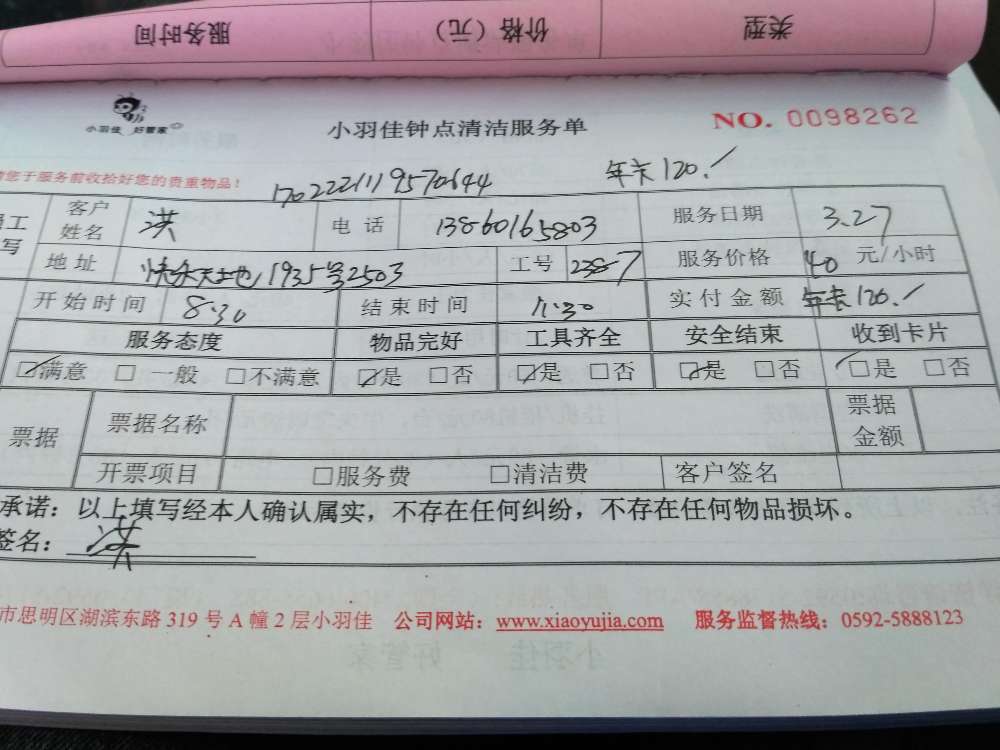 服务时间 价格（元） 类型
小羽佳 好管家
小羽佳钟点清洁服务单 NO. 0098262
请您于服务前收拾好您的贵重物品！ 1702221119570644 年卡120./
员工填写 客户姓名 洪 电话 13860165803 服务日期 3.27
地址 快乐天地1935号2503 工号 238-7 服务价格 40 元/小时
开始时间 8:30 结束时间 11:30 实付金额 年卡120./
服务态度 物品完好 工具齐全 安全结束 收到卡片
☑满意 □一般 □不满意 ☑是 □否 ☑是 □否 ☑是 □否 ☑是 □否
票据 票据名称 票据金额
开票项目 □服务费 □清洁费 客户签名
承诺：以上填写经本人确认属实，不存在任何纠纷，不存在任何物品损坏。
签名：洪
市思明区湖滨东路 319 号 A 幢 2 层小羽佳 公司网站：www.xiaoyujia.com 服务监督热线：0592-5888123